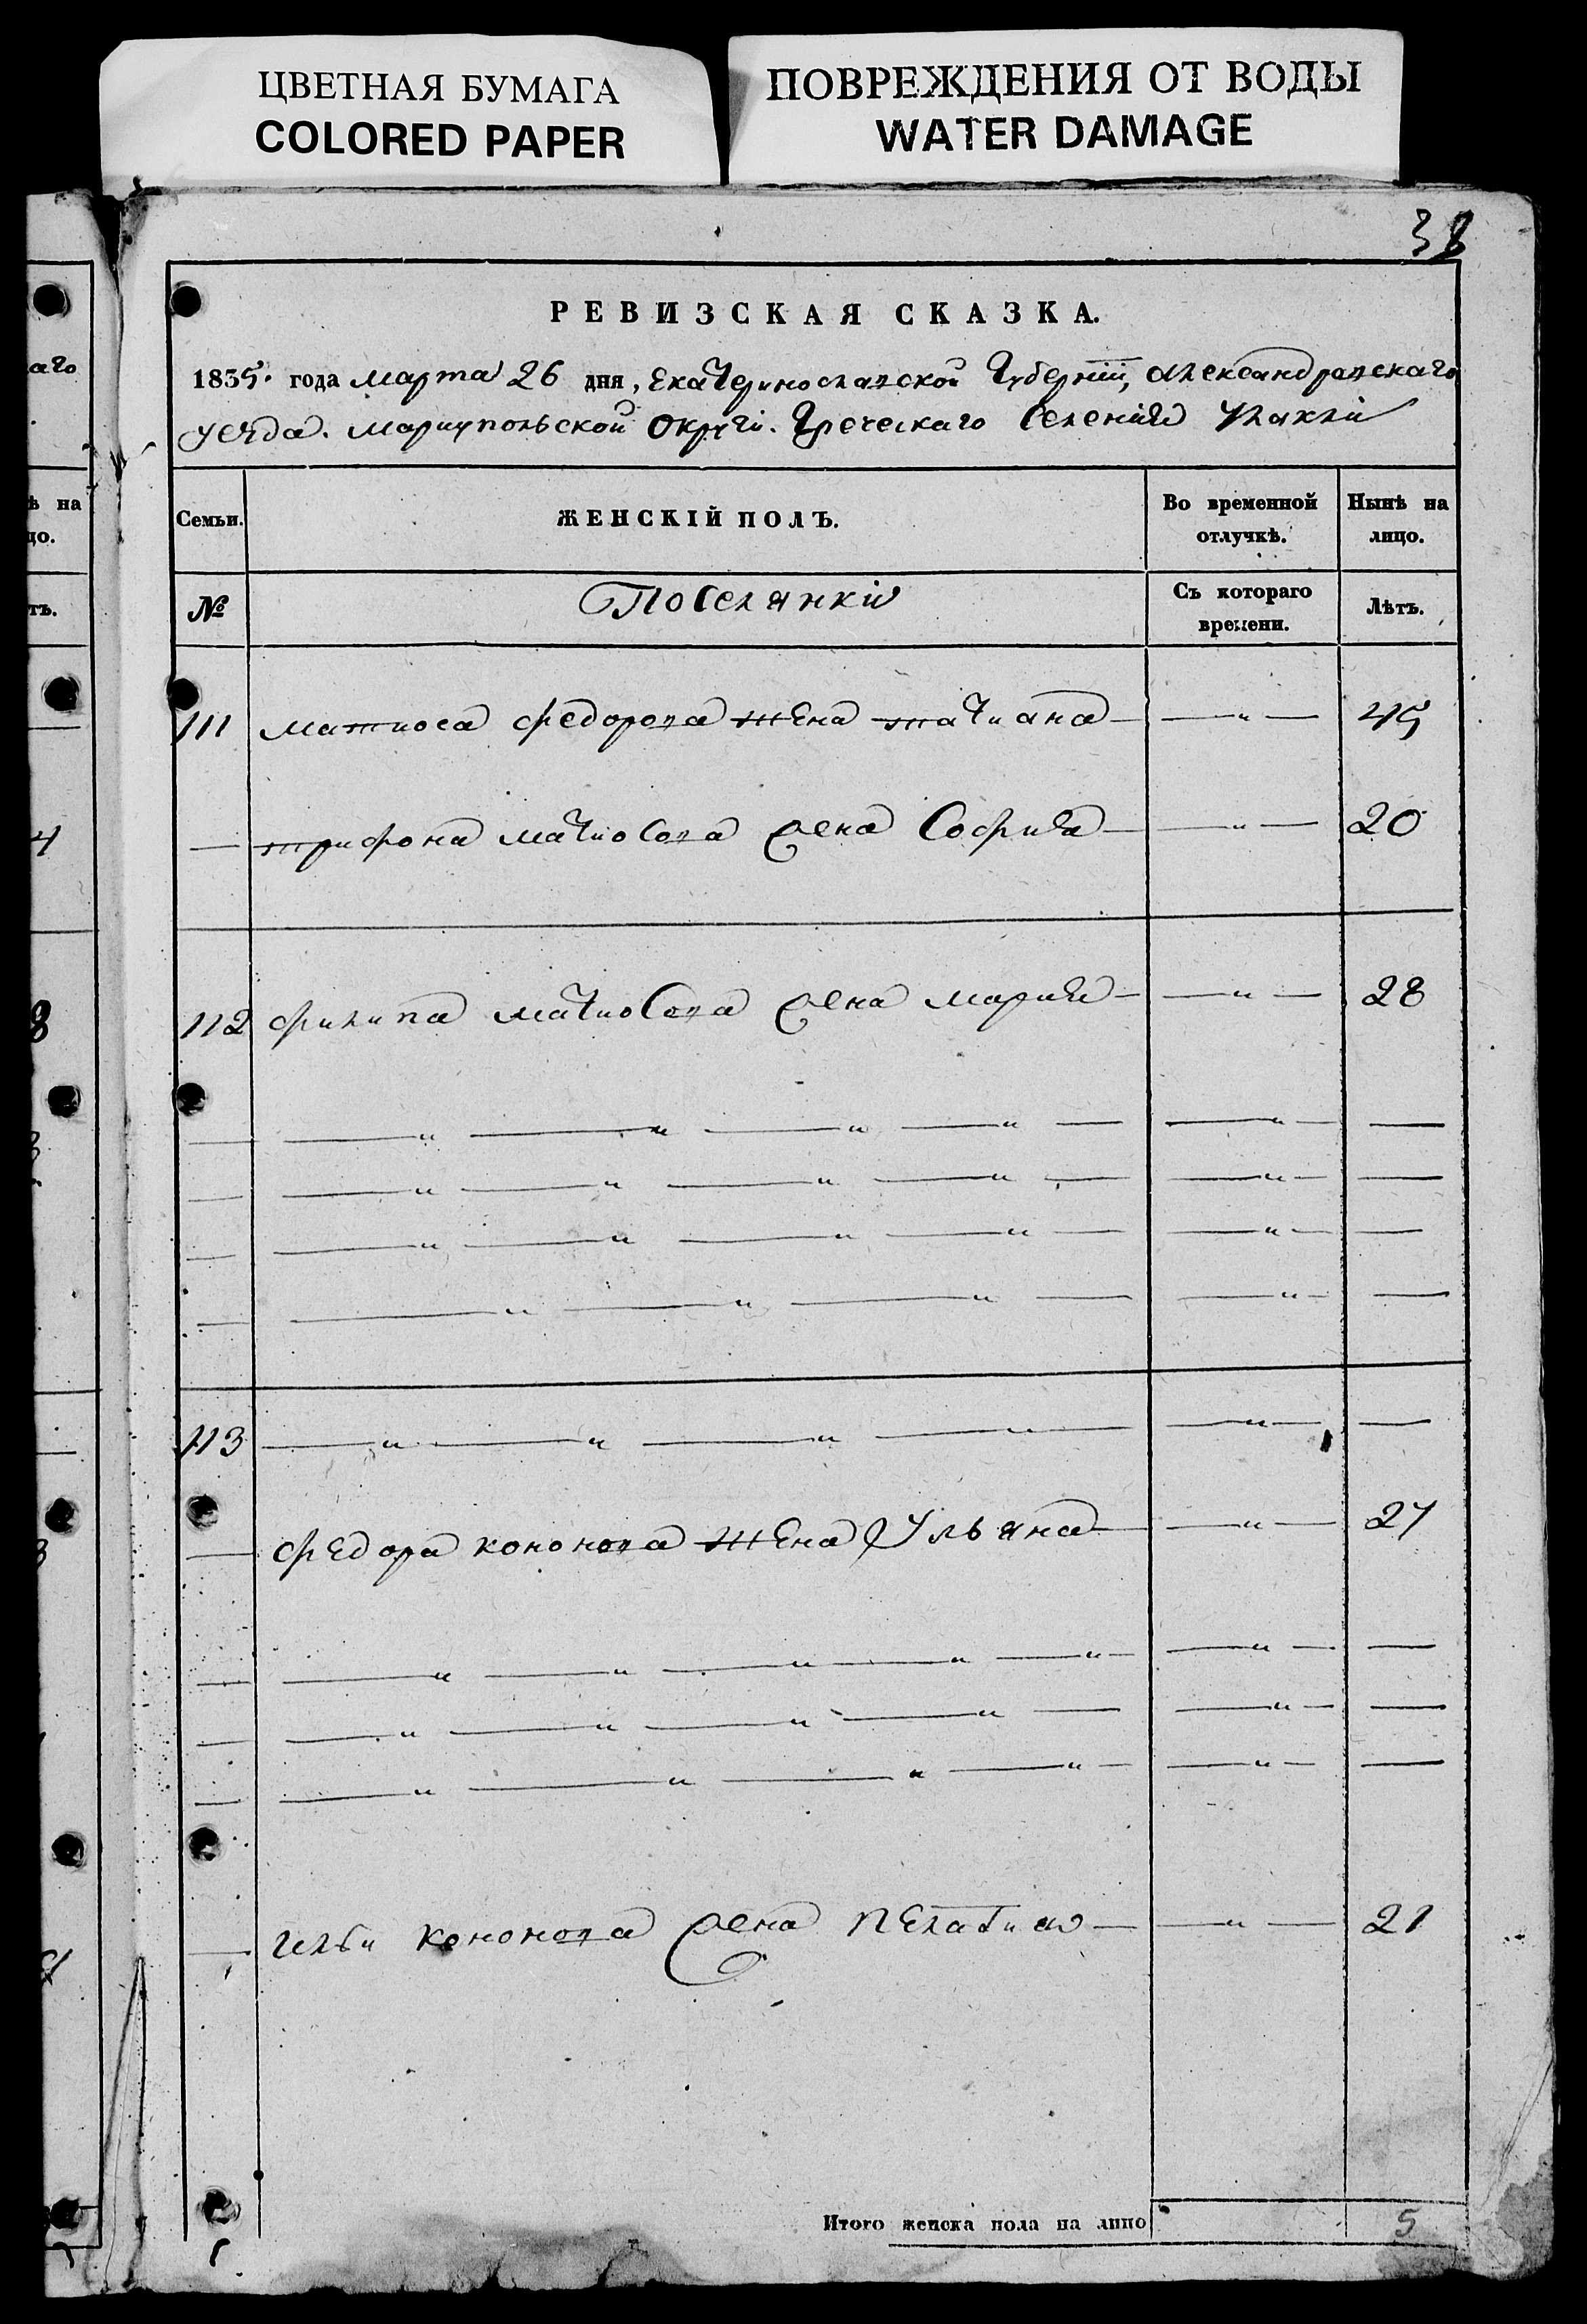 ЦВЕТНАЯ БУМАГА
COLORED PAPER
ПОВРЕЖДЕНИЯ ОТ ВОДЫ
WATER DAMAGE
38
РЕВИЗСКАЯ СКАЗКА.
1835. года марта 26 дня, Екатеринославской Губерніи, александровскаго
уезда. мариупольской Округи. Греческаго Селения
Семьи. ЖЕНСКІЙ ПОЛЪ. Во временной отлучкѣ. Нынѣ на лицо.
№ Поселянки Съ котораго времени. Лѣтъ.
111 матиоса федорова жена татиана — „ — 45
— трифона матиосова жена Софиа — „ — 20
112 филипа матиосова жена мария — „ — 28
113 — „ — „ — „ — „ —
— федора кононова жена Ульяна — „ — 27
— ильи кононова жена пелагия — „ — 21
Итого женска пола на лицо 5
аго
ѣ на
цо.
тъ.
4
8